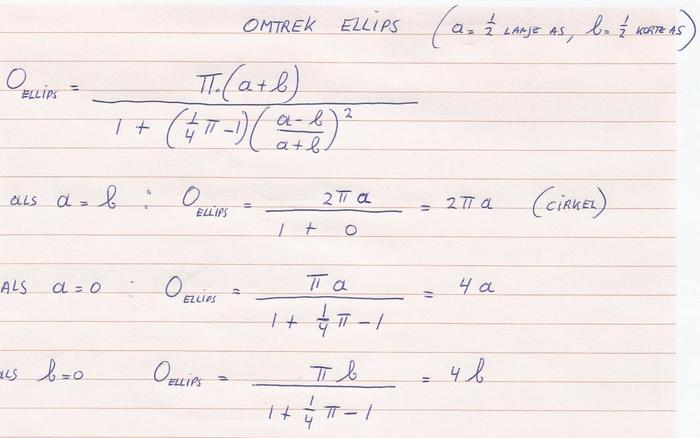 OMTREK ELLIPS (a = 1/2 LANGE AS, b = 1/2 KORTE AS)
O ELLIPS = π.(a+b) / 1 + (1/4 π-1)(a-b / a+b)²
ALS a = b : O ELLIPS = 2πa / 1 + 0 = 2πa (CIRKEL)
ALS a=0 : O ELLIPS = πa / 1 + 1/4 π - 1 = 4a
ALS b=0 O ELLIPS = πb / 1 + 1/4 π - 1 = 4b